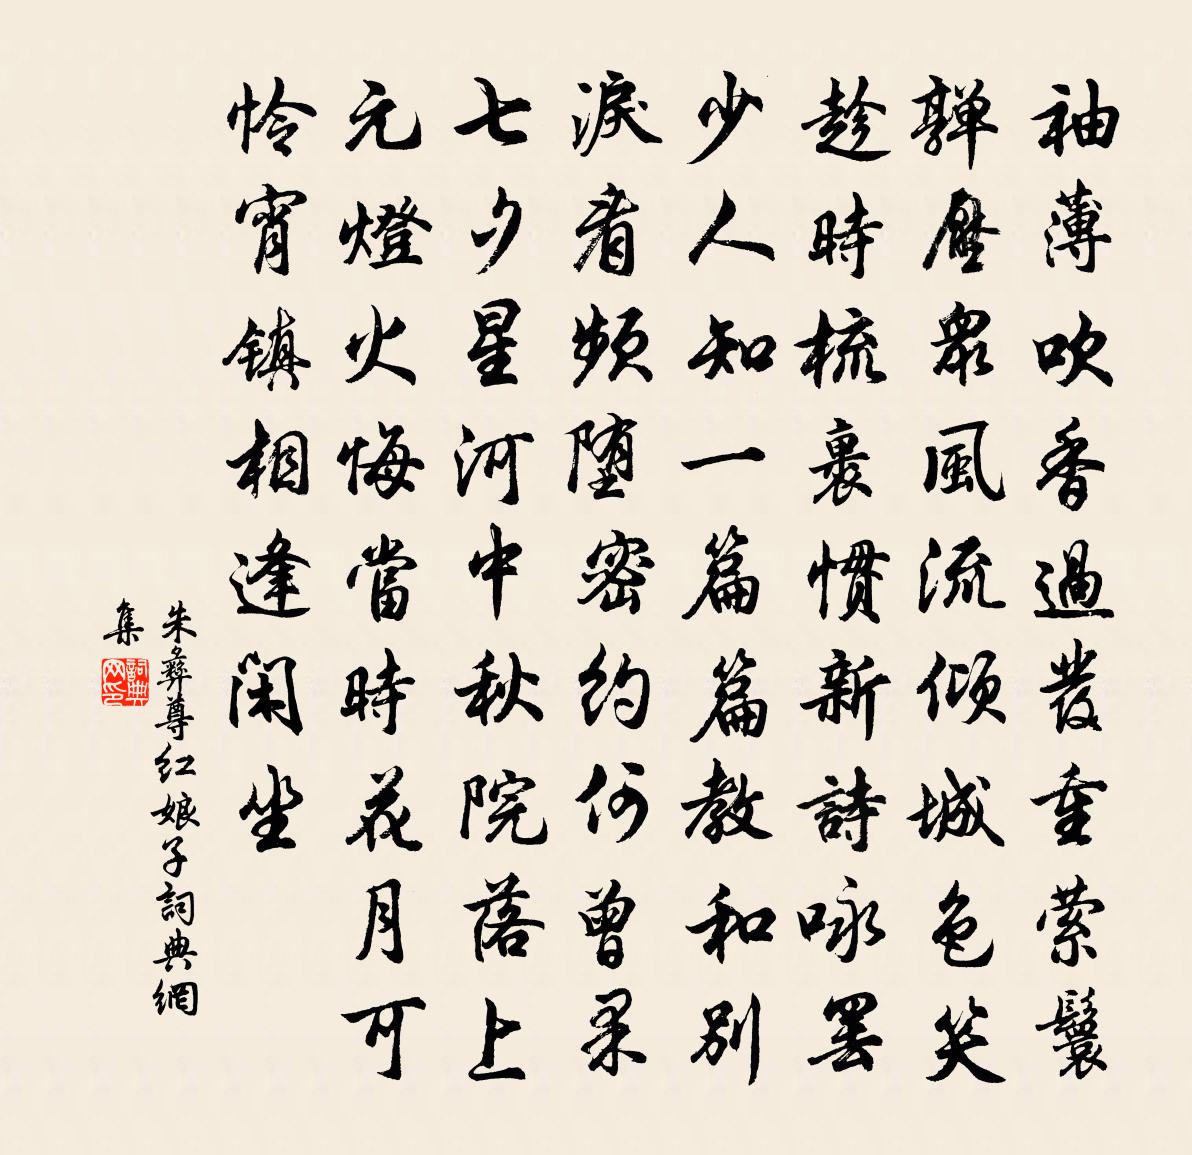 袖薄吹香過發重縈鬟
嚲壓衆風流傾城色笑
趁時梳裹慣新詩咏罷
少人知一篇篇教和別
淚看頻墮密約何曾果
七夕星河中秋院落上
元燈火悔當時花月可
憐宵鎮相逢閑坐
朱彝尊紅娘子詞典網
集
詞典网印